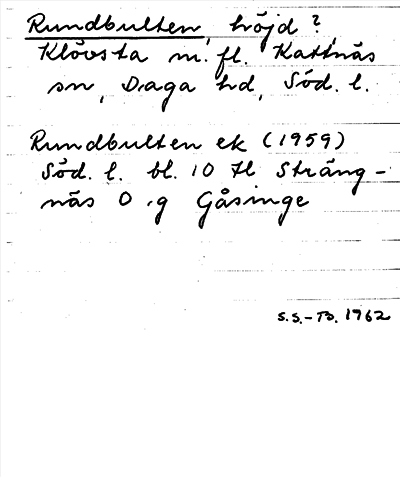 Rundbulten, höjd?
Klövsta m.fl. Kattnäs
sn, Daga hd, Söd. l.
Rundbulten ek (1959)
Söd. l. bl. 10 Il Sträng-
näs O .g Gåsinge
S.S.-B. 1962